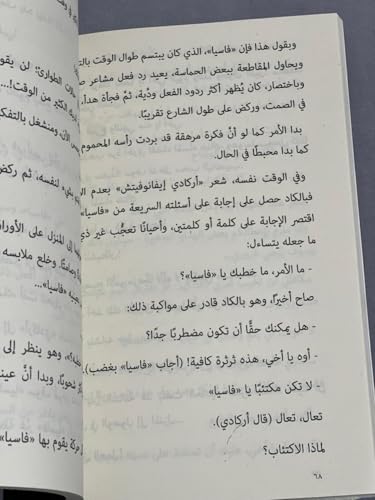 ويقول هذا فإن «فاسيا»، الذي كان يبتسم طوال الوقت بالت
ويحاول المقاطعة ببعض الحماسة، يعيد رد فعل مشاعر ص
وباختصار، كان يُظهر أكثر ردود الفعل ودّية، ثمَّ فجأة هدأ،
في الصمت، وركض على طول الشارع تقريبًا.
بدا الأمر كما لو أنَّ فكرة مرهقة قد بردت رأسه المحموم
كما بدا محبطًا في الحال.
وفي الوقت نفسه، شعر «أركادي إيفانوفيتش» بعدم ال
فبالكاد حصل على إجابة على أسئلته السريعة من «فاسيا»
اقتصر الإجابة على كلمة أو كلمتين، وأحيانًا تعجُّب غير ذي
ما جعله يتساءل:
- ما الأمر، ما خطبك يا «فاسيا»؟
صاح أخيرًا، وهو بالكاد قادر على مواكبة ذلك:
- هل يمكنك حقًّا أن تكون مضطربًا جدًّا؟
- أوه يا أخي، هذه ثرثرة كافية! (أجاب «فاسيا» بغضب).
- لا تكن مكتئبًا يا «فاسيا»
تعال، تعال (قال أركادي).
لماذا الاكتئاب؟
٦٨
الات الطوارئ: لن يقو
الكثير من الوقت!...
الآن، ومنشغل بالتفك
لنفسه، ثم ركض
إلى المنزل على الأوراق
وخلع ملابسه
«فاسيا»...
وهو ينظر إلى
شحوبًا، وبدا أنَّ عين
حركة يقوم بها «فاسيا»